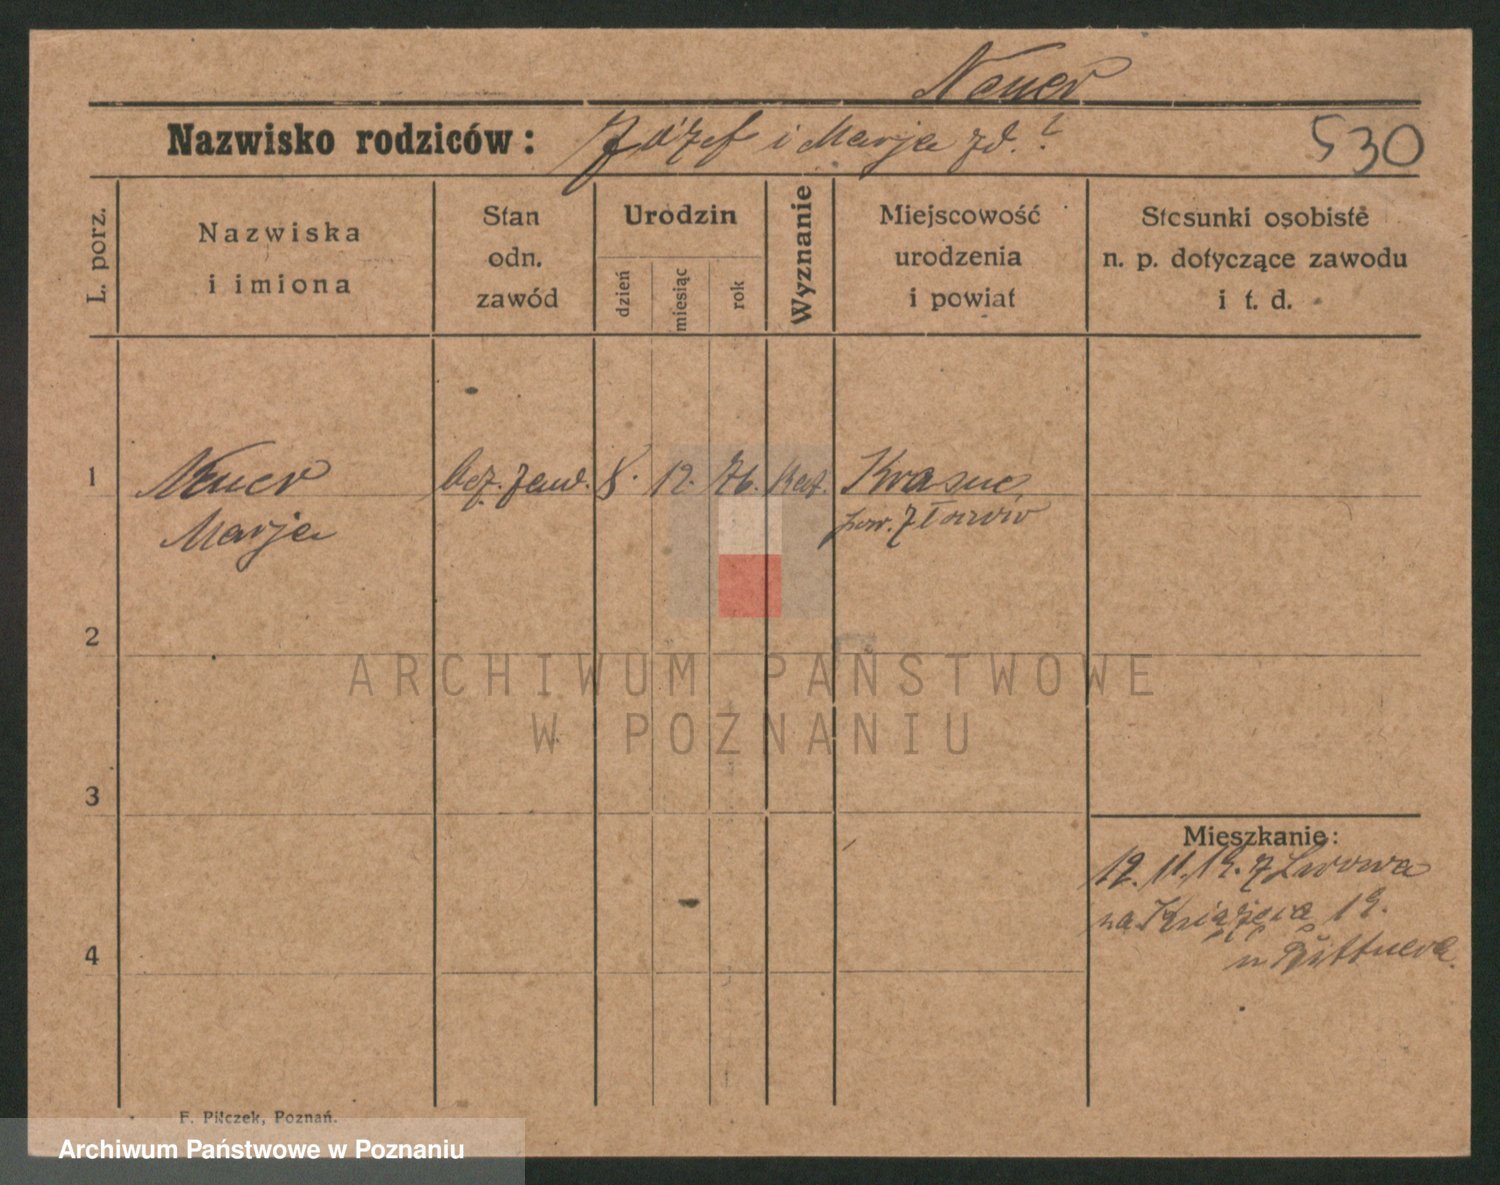 Neuer
Nazwisko rodziców: Józef i Marja zd. ?
530
L. porz.
Nazwiska
i imiona
Stan
odn.
zawód
Urodzin
dzień
miesiąc
rok
Wyznanie
Miejscowość
urodzenia
i powiat
Stosunki osobiste
n. p. dotyczące zawodu
i t. d.
1 Neuer bez. zaw. 8. 12. 76. Kat. Krasne
Marja pow. Złoczów
2
ARCHIWUM PAŃSTWOWE
W POZNANIU
3
Mieszkanie:
12. 11. 19. z Lwowa
na 19.
u
4
F. Pilczek, Poznań.
Archiwum Państwowe w Poznaniu